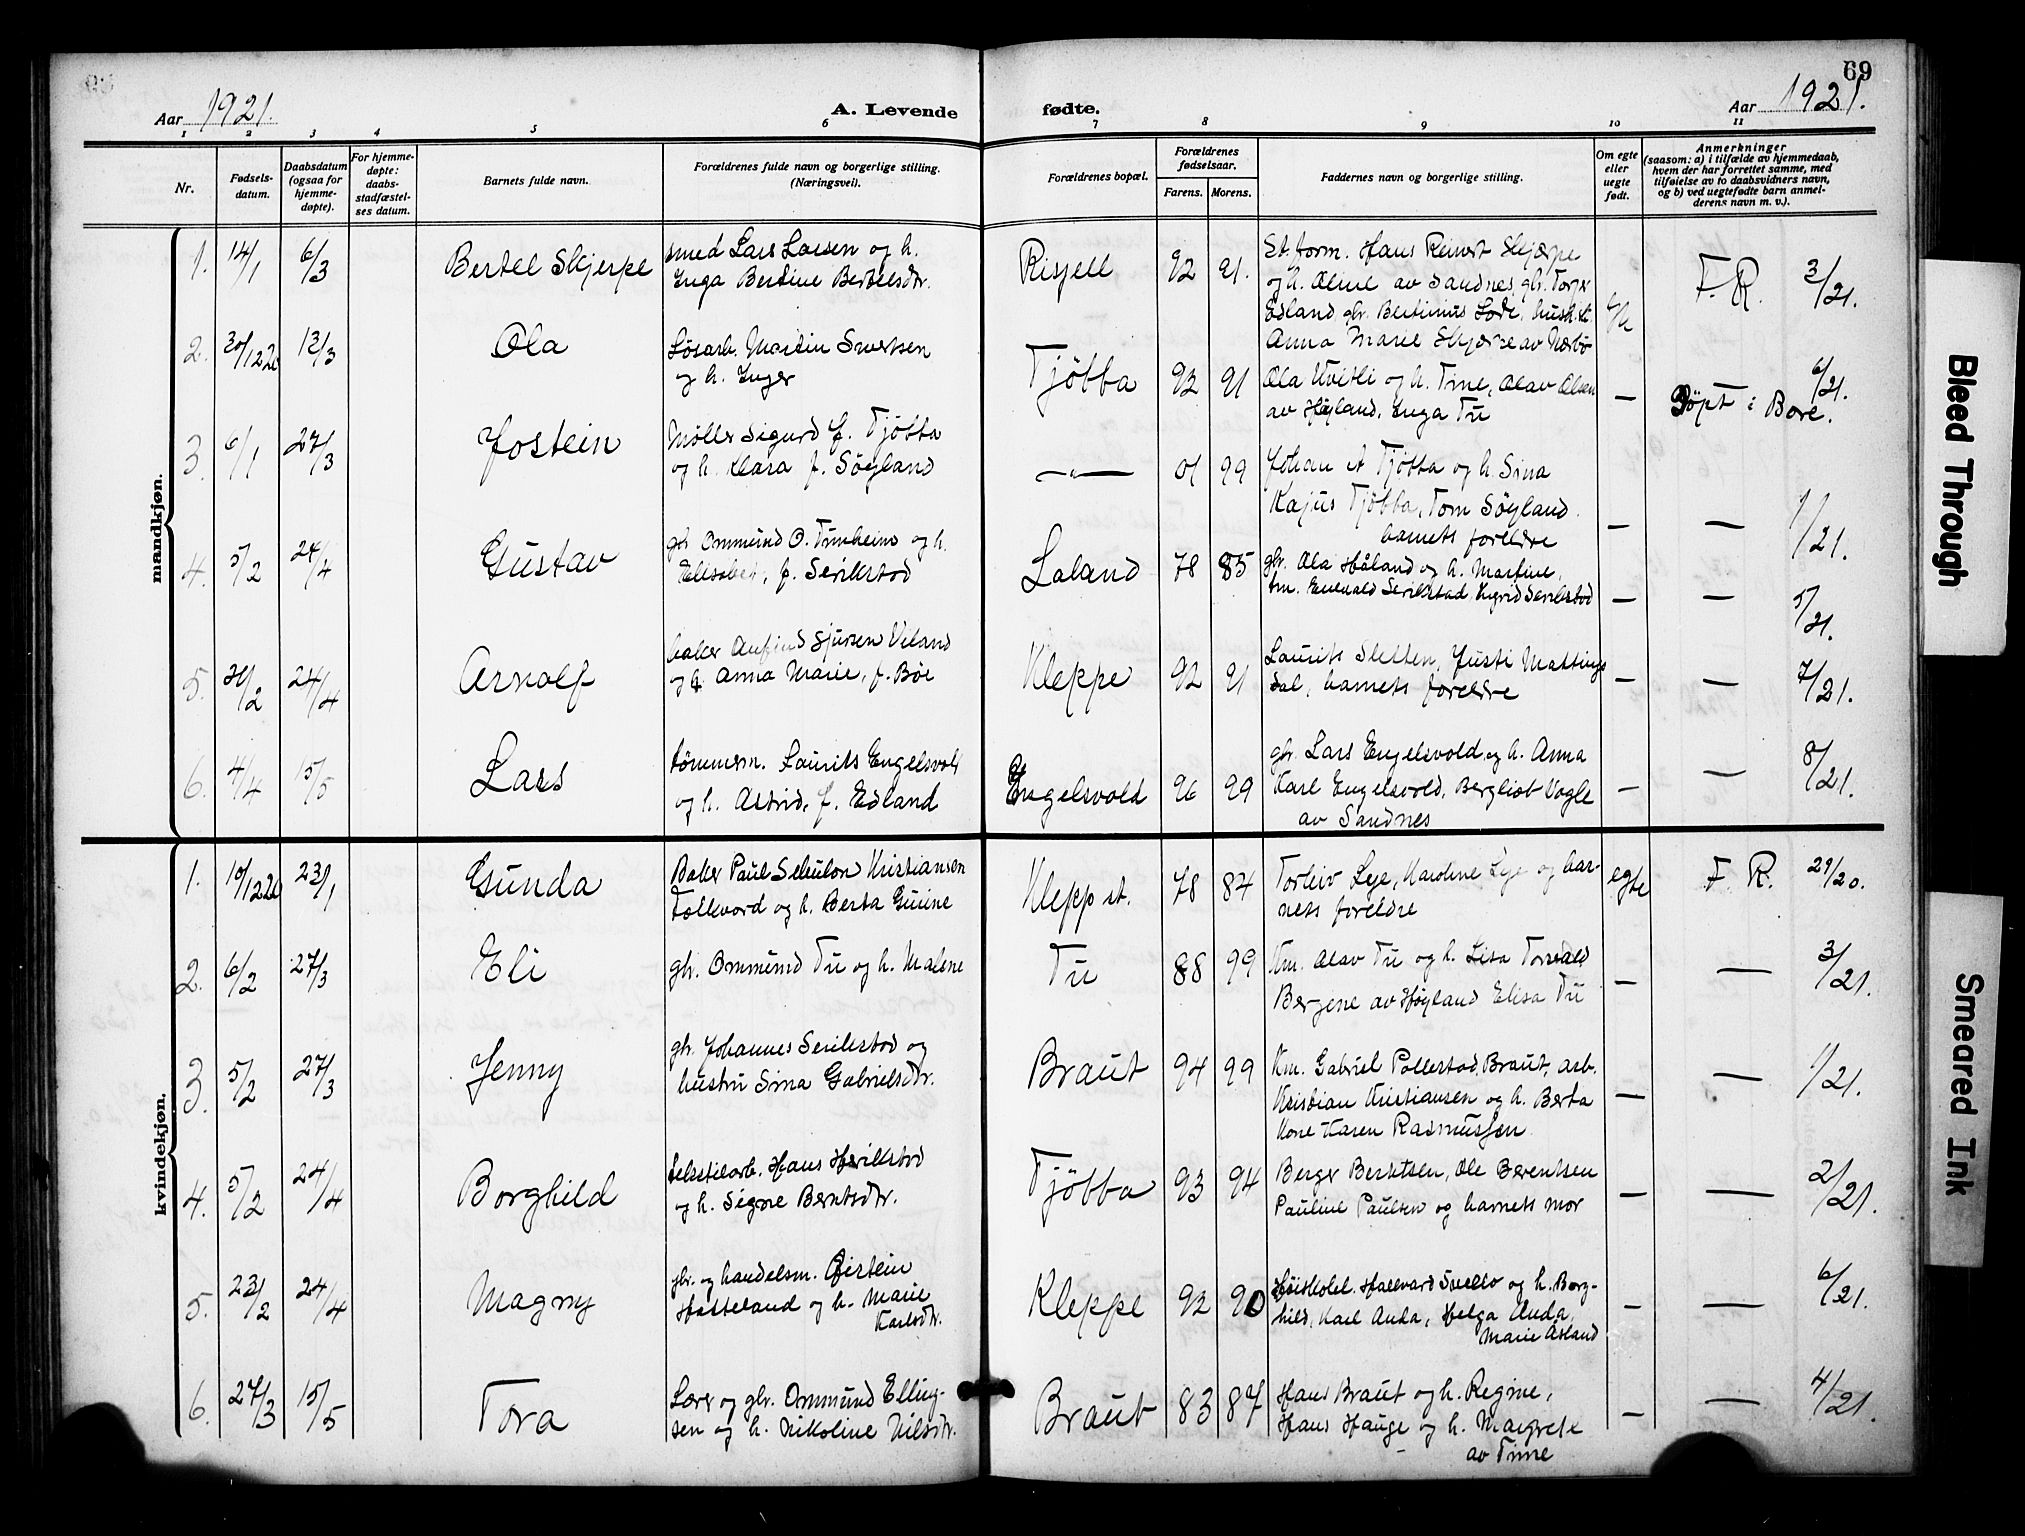 69
Aar 1921.
A. Levende
fødte.
Aar 1921.
1 2 3 4 5 6 7 8 9 10 11
Nr.
Fødsels-
datum.
Daabsdatum
(ogsaa for
hjemme-
døpte).
For hjemme-
døpte:
daabs-
stadfæstel-
ses datum.
Barnets fulde navn.
Forældrenes fulde navn og borgerlige stilling.
(Næringsvei).
Forældrenes bopæl.
Forældrenes
fødselsaar.
Farens. Morens.
Faddernes navn og borgerlige stilling.
Om egte
eller
uegte
født.
Anmerkninger
(saasom: a) i tilfælde av hjemmedaab,
hvem der har forrettet samme, med
tilføielse av to daabsvidners navn,
og b) ved uegtefødte barn anmel-
derens navn m. v.).
mandkjøn.
1. 14/1 6/3 Bertel Skjerpe
smed Lars Larsen og h.
Inga Bertine Bertelsdtr.
Risjell 92 91.
St. form. Hans Reinert Skjærpe
og h. Oline av Sandnes, gbr. Torger
Edland gbr. Bertinius Lode, hush.
Anna Marie Skjerpe av Nærbø
e/k
F. R. 3/21.
2. 30/12 20 13/3 Ola
Løsarb. Martin Sivertsen
og h. Inger
Tjøtta 92 91
Ola Kvitli og h. Tine, Olav Olsen
av Høyland, Inga Tu
—
6/21.
Døpt i Bore.
3. 6/1 27/3 Jostein
Møller Sigurd J. Tjøtta
og h. Klara f. Søyland
—"— 01 99
Johan A Tjøtta og h. Sina
Kajus Tjøtta, Tom Søyland
barnets foreldre
— — 1/21.
4. 5/2 24/4 Gustav
gbr Ommund O. Timheim og h.
Elisabet, f. Serikstad
Laland 78 85
gbr. Ola Håland og h. Martine,
tm. Enevald Serikstad, Ingrid Serikstad
— — 5/21.
5. 20/2 24/4 Arnolf
baker Anfind Sjursen Viland
og h. Anna Marie, f. Bøe
Kleppe 92 91
Laurits Sletten, Justi Mattings
dal, barnets foreldre
— — 7/21.
6. 4/4 15/5 Lars
tømmerm. Laurits Engelsvold
og h. Astrid, f. Edland
Engelsvold 96 99
gbr. Lars Engelsvold og h. Anna
Karl Engelsvold, Bergliot Vagle
av Sandnes
— — 8/21.
kvindekjøn.
1. 10/12 20 23/1 Gunda
Baker Paul Sebulon Kristiansen
Follevord og h. Berta Gurine
Klepp st. 78 84
Torleiv Lye, Karoline Lye og bar-
nets foreldre
egte F. R. 29/20.
2. 6/2 27/3 Eli
gbr. Ommund Tu og h. Malene
Tu 88 99
Km. Olav Tu og h. Lisa Torvald
Bergene av Høyland Elisa Tu
— — 3/21.
3. 5/2 27/3 Jenny
gbr. Johannes Serikstad og
hustru Sina Gabrielsdtr.
Braut 94 99
Km. Gabriel Pollestad, Braut, arb.
Kristian Kristiansen og h. Berta
Kone Karen Rasmussen
— — 1/21.
4. 5/2 24/4 Borghild
Hans Herikstad
og h. Signe Berntsdtr.
Tjøtta 93 94
Berger Berntsen, Ole Berentsen
Pauline Paulsen og barnets mor
— — 2/21.
5. 23/2 24/4 Magny
gbr. og handelsm. Øistein
Hatteland og h. Marie
Karlsdtr.
Kleppe 92 90
Hallvard Svello og h. Borg-
hild, Karl Anda, Helga Anda,
Marie Åsland
— — 6/21.
6. 27/3 15/5 Tora
Lærer og gbr. Ommund Elling-
sen og h. Nikoline Nilsdtr.
Braut 83 87
Hans Braut og h. Regine,
Hans Hauge og h. Margrete
av Time
— — 4/21.
Bleed Through
Smeared Ink